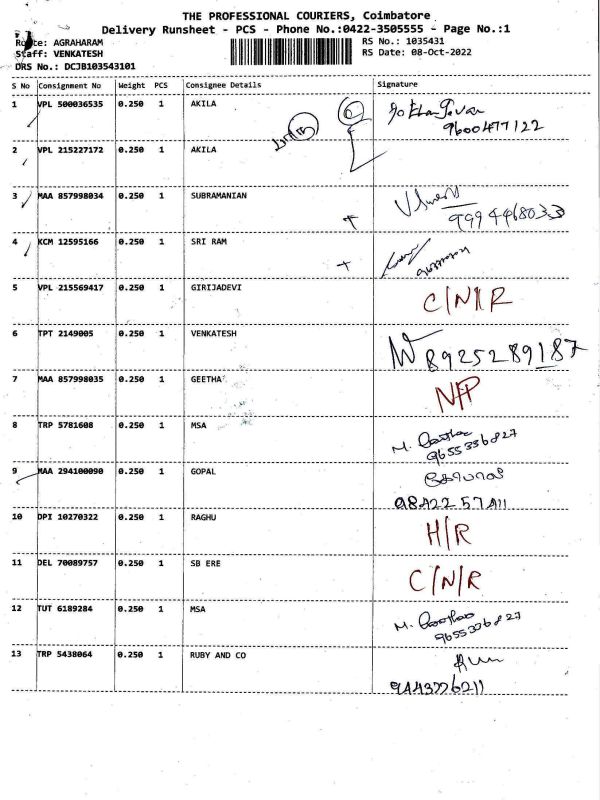 THE PROFESSIONAL COURIERS, Coimbatore
Delivery Runsheet - PCS - Phone No.:0422-3505555 - Page No.:1
Route: AGRAHARAM
RS No.: 1035431
Staff: VENKATESH
RS Date: 08-Oct-2022
DRS No.: DCJB103543101
S No Consignment No Weight PCS Consignee Details Signature
1 VPL 500036535 0.250 1 AKILA
9600477122
2 VPL 215227172 0.250 1 AKILA
3 MAA 857998034 0.250 1 SUBRAMANIAN
9994468033
4 KCM 12595166 0.250 1 SRI RAM
5 VPL 215569417 0.250 1 GIRIJADEVI C/N/R
6 TPT 2149005 0.250 1 VENKATESH
8925289187
7 MAA 857998035 0.250 1 GEETHA N/P
8 TRP 5781608 0.250 1 MSA
9655336827
9 MAA 294100090 0.250 1 GOPAL கோபால்
98422 57411
10 DPI 10270322 0.250 1 RAGHU H/R
11 DEL 70089757 0.250 1 SB ERE C/N/R
12 TUT 6189284 0.250 1 MSA
9655336827
13 TRP 5438064 0.250 1 RUBY AND CO
9443726211